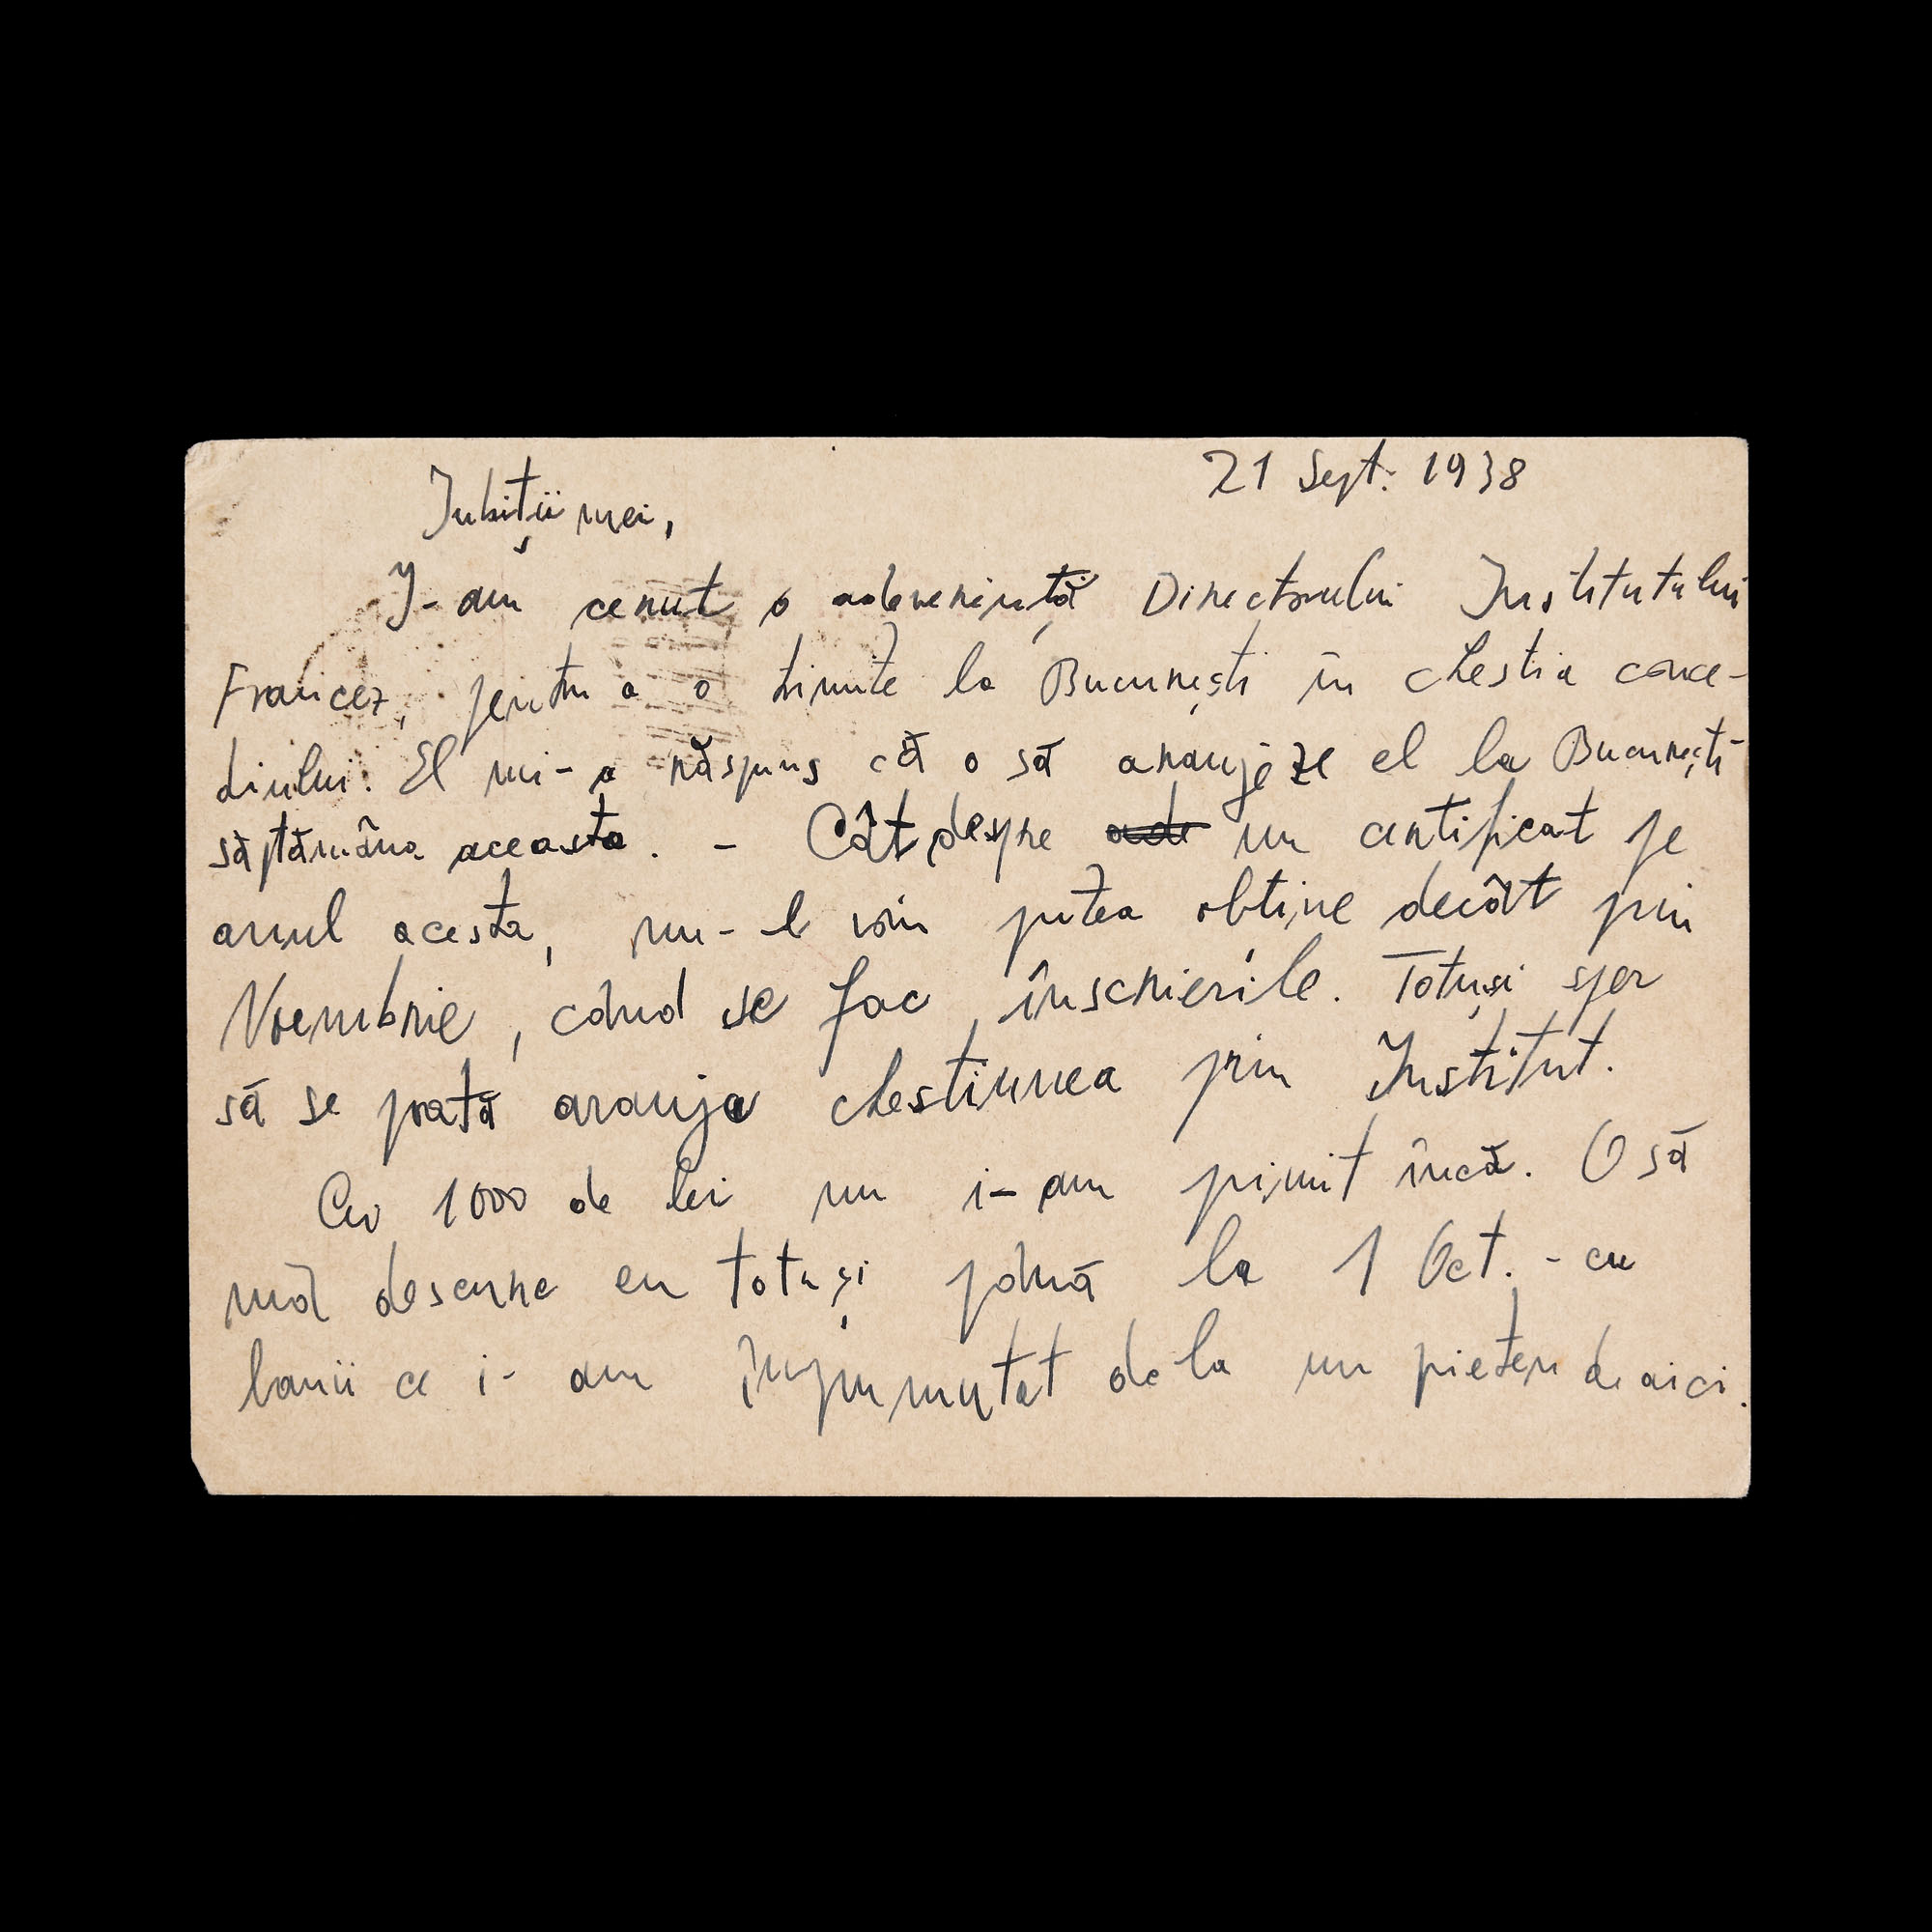 21 Sept. 1938
Iubiții mei,
I-am cerut o adeverință Directorului Institutului
Francez, pentru a o trimite la București în chestia conce-
diului. El mi-a răspuns că o să aranjeze el la București
săptămâna aceasta. - Cât despre ade un certificat pe
anul acesta, nu-l voiu putea obține decât prin
Noembrie, când se fac înscrierile. Totuși sper
să se poată aranja chestiunea prin Institut.
Cei 1000 de lei nu i-am primit încă. O să
mă descurc eu totuși până la 1 Oct. - cu
banii ce i-am împrumutat de la un prieten de aici.